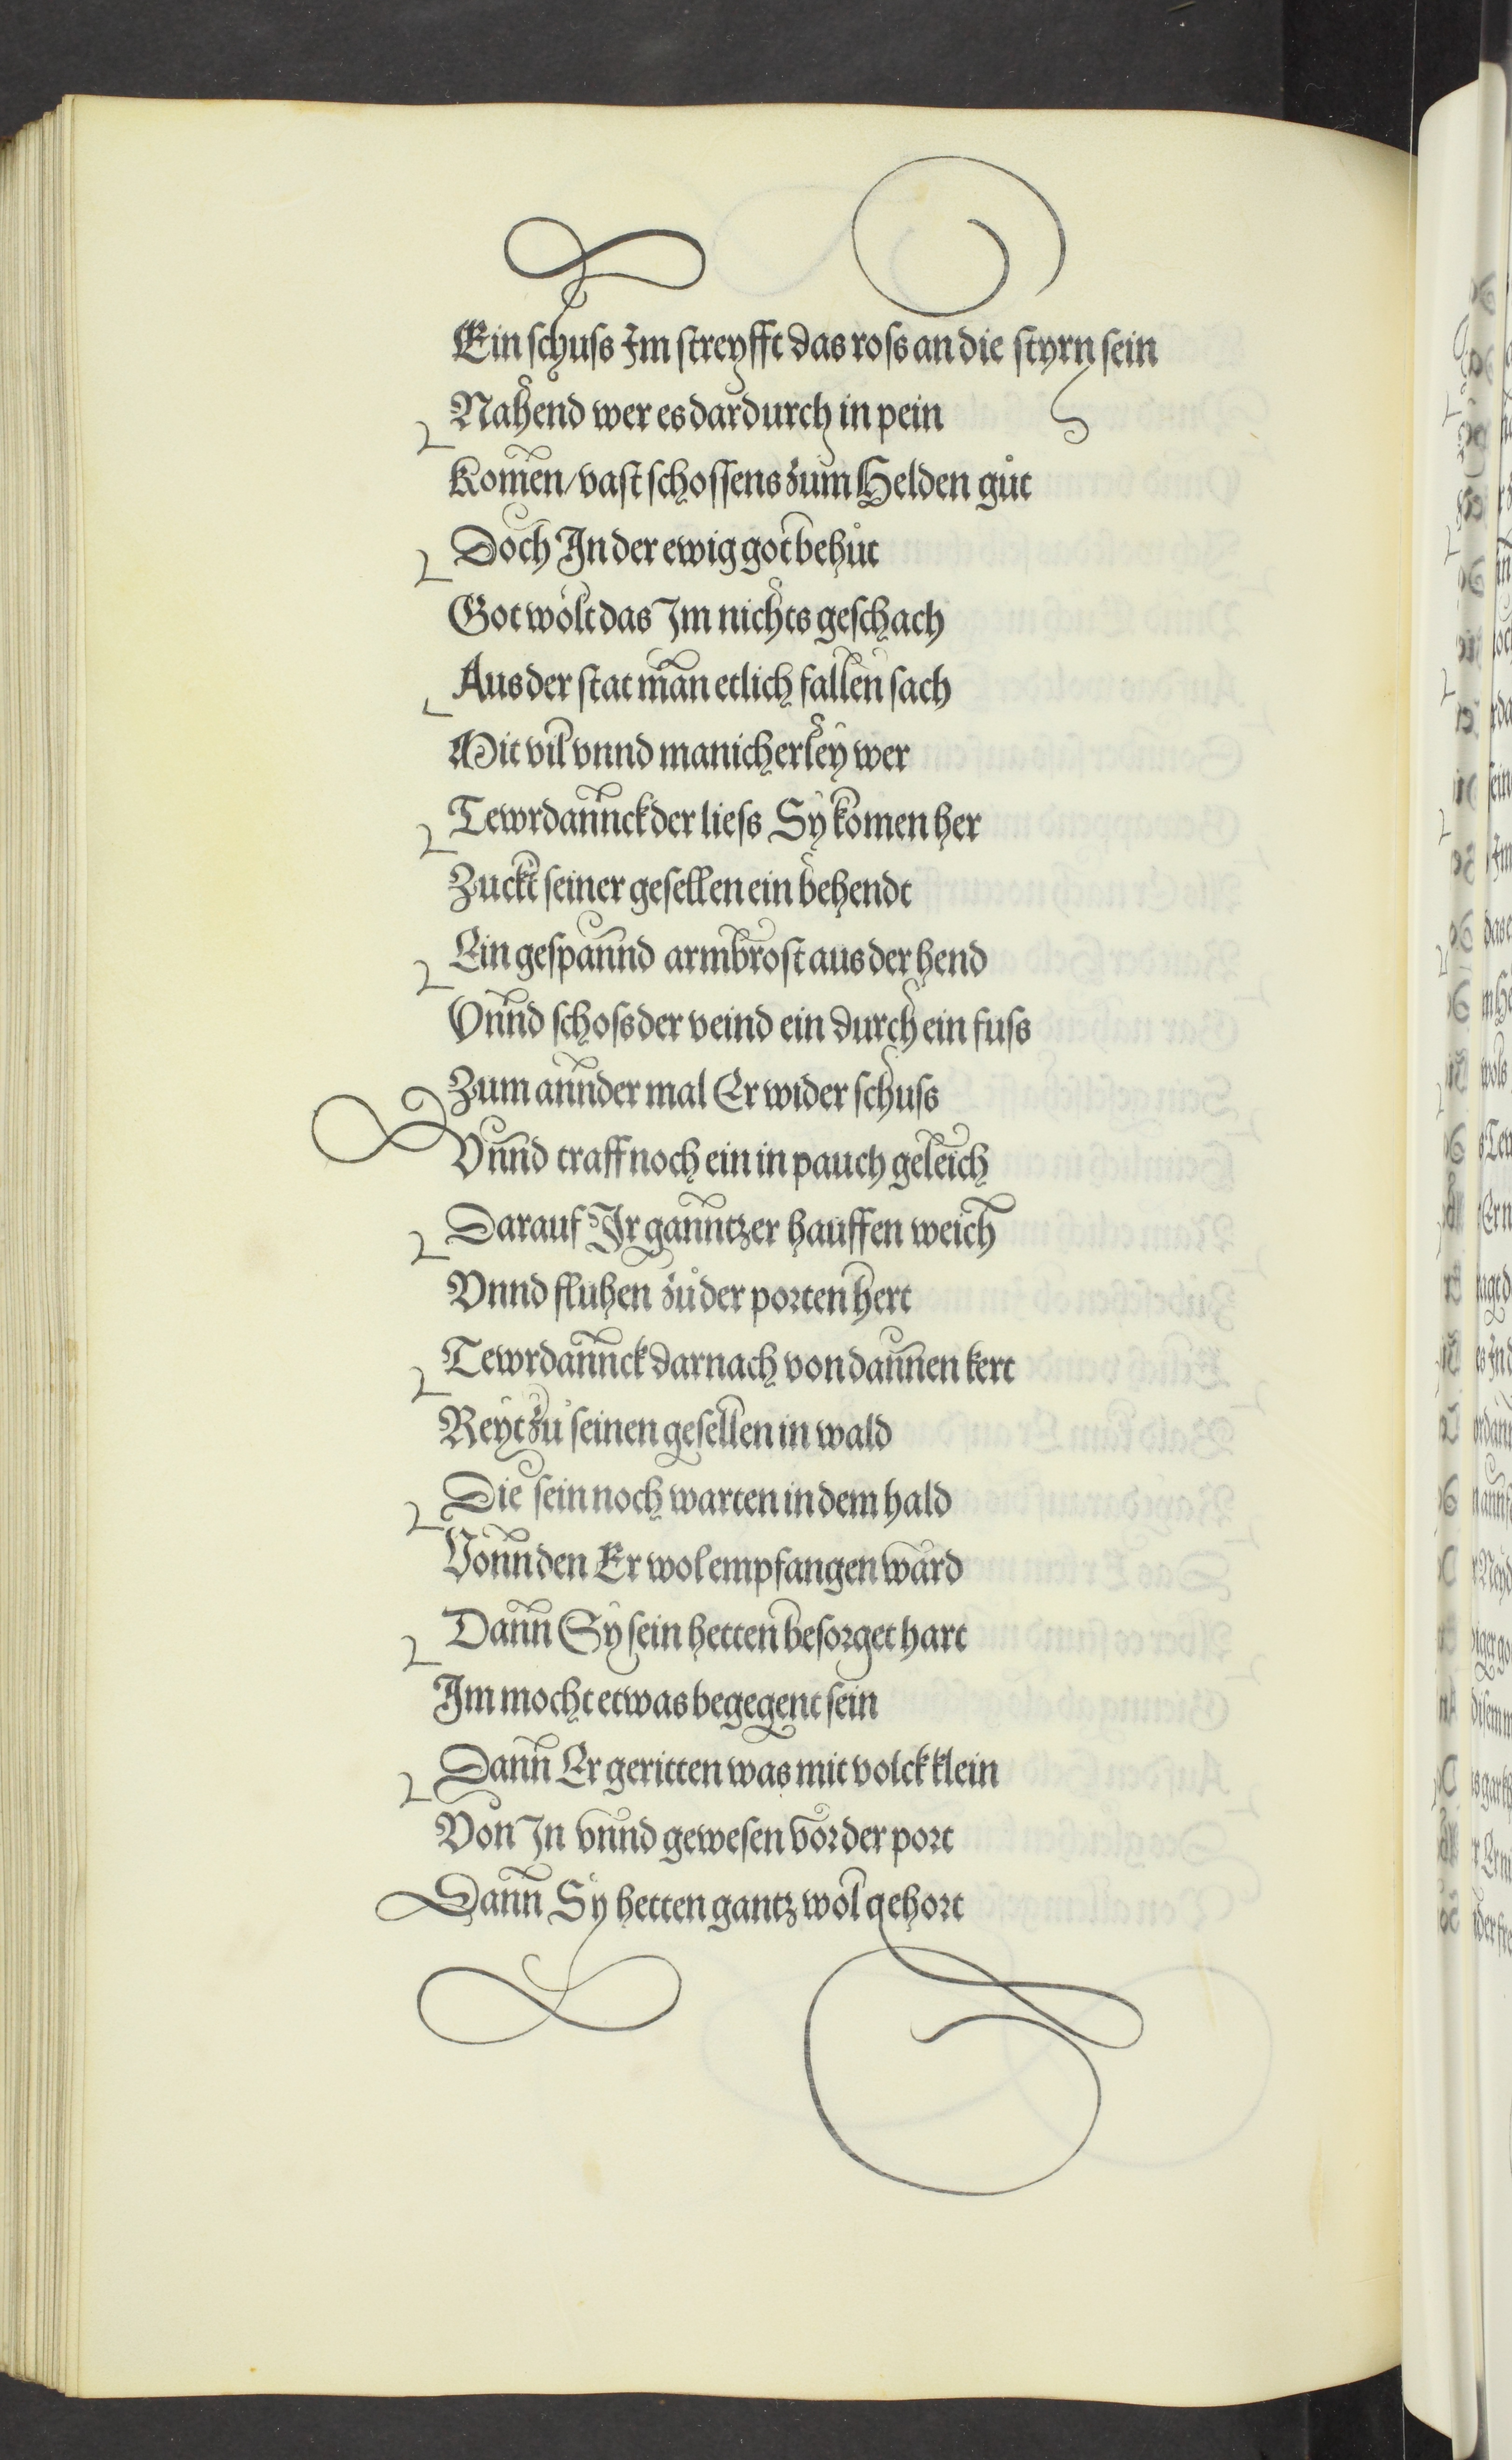 Ein schuss Im streyfft das ross an die styrn sein
Nahend wer es dardurch in pein
Komen / vast schossens zum Helden gůt
Doch In der ewig got behůt
Got wolt das Im nichts geschach
Aus der stat man etlich fallen sach
Mit vil vnnd manicherley wer
Tewrdannck der liess Sy komen her
Zuckt seiner gesellen ein behendt
Ein gespannd armbrost aus der hend
Vnnd schoss der veind ein durch ein fuss
Zum annder mal Er wider schuss
Vnnd traff noch ein in pauch geleich
Darauf Ir ganntzer hauffen weich
Vnnd fluhen zů der porten hert
Tewrdannck darnach von dannen kert
Reyt zu seinen gesellen in wald
Die sein noch warten in dem hald
Vonn den Er wol empfangen ward
Dann Sy sein hetten besorget hart
Im mocht etwas begegent sein
Dann Er geritten was mit volck klein
Von In vnnd gewesen vor der port
Dann Sy hetten gantz wol gehort